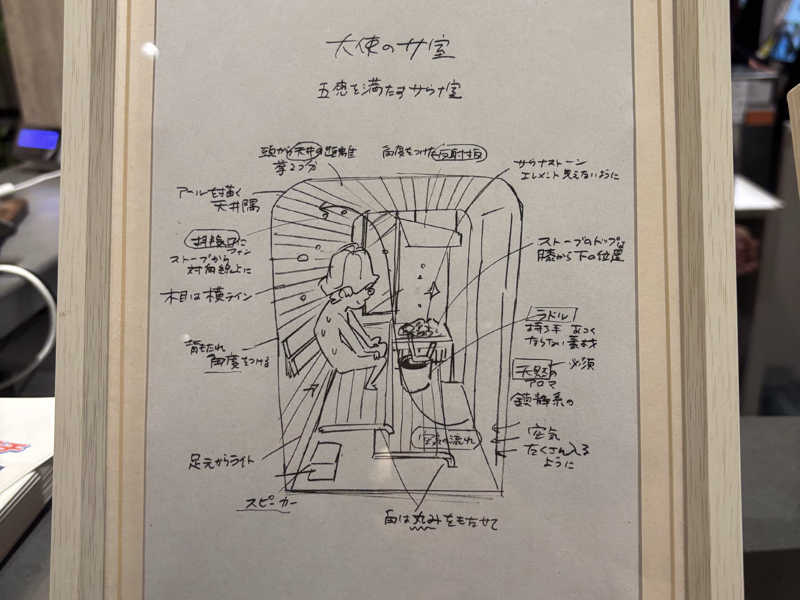 大使のサ室
五感を満たすサウナ室
頭から天井の距離
拳2つ分
角度をつけた反射板
サウナストーン
エレメント見えないように
アールを描く
天井隅
排気口に
ファン
ストーブから
対角線上に
ストーブのトップは
膝から下の位置
木目は横ライン
ラドル
持ち手 あつく
ならない素材
背もたれ
角度をつける
天然の
アロマ
必須
鎮静系の
空気の流れ
空気
たくさん入る
ように
足元からライト
スピーカー
角は丸みをもたせて